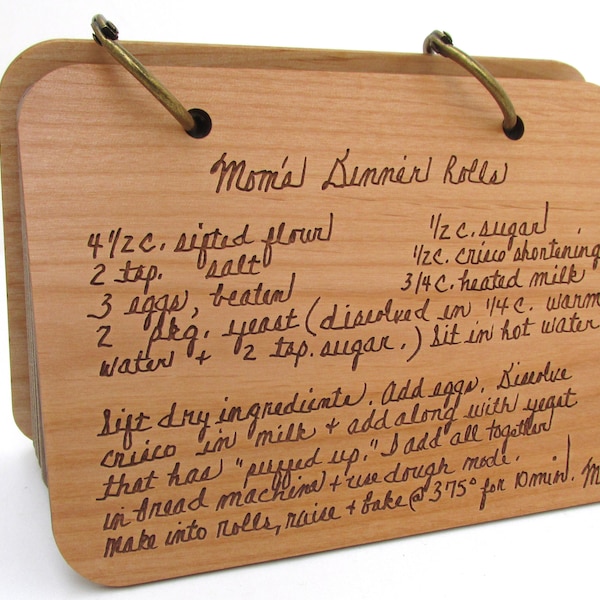 Mom's Dinner Rolls
4 1/2 c. sifted flour
2 tsp. salt
3 eggs, beaten
1/2 c. sugar
1/2 c. crisco shortening
3/4 c. heated milk
2 pkg. yeast (dissolved in 1/4 c. warm
water + 2 tsp. sugar.) Sit in hot water
Sift dry ingredients. Add eggs. Disolve
crisco in milk + add along with yeast
that has "puffed up." I add all together
in bread machine + use dough mode.
Make into rolls, raise + bake @ 375° for 10 min.